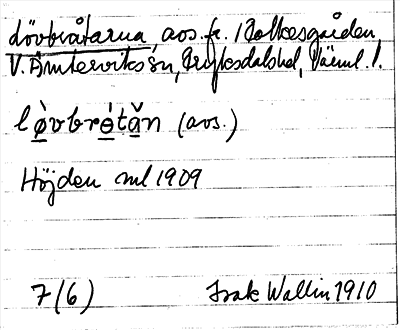 lövbråtarna avs. fr. Kolkesgården,
V. Ämterviks sn, Fryksdalshd, Värml. l.
lø̀vbrótăn (avs.)
Höjden ml 1909
7(6) Isak Wallin 1910